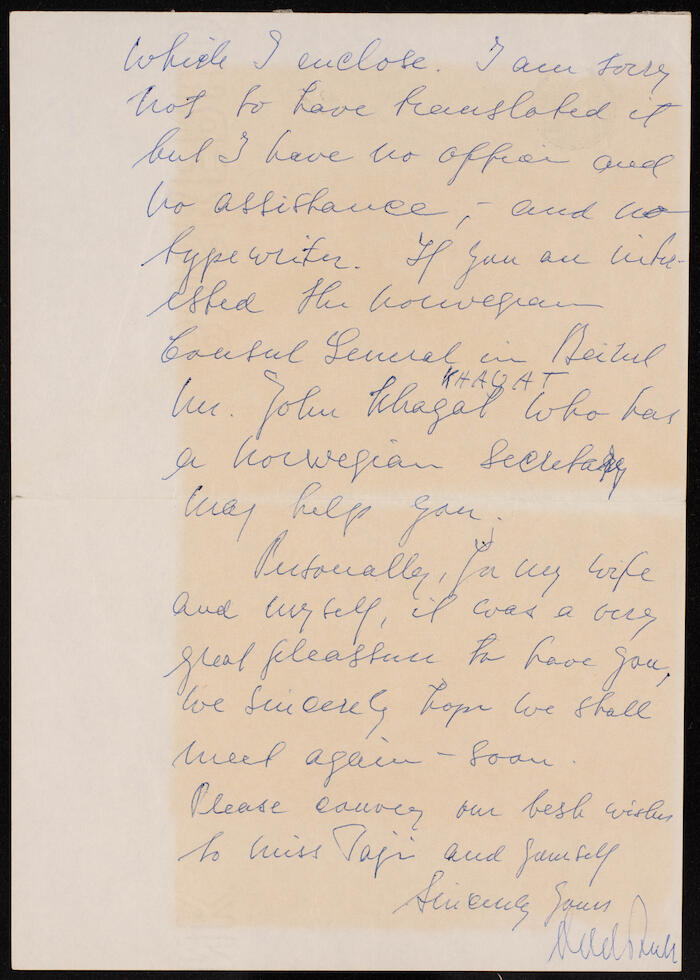 which I enclose. I am sorry
not to have translated it
but I have no office and
no assistance, - and no
typewriter. If you are inter-
ested the norwegian
Consul General in Beirut
KHAYAT
Mr. John Khayat who has
a norwegian secretary
may help you.
Personally, for my wife
and myself, it was a very
great pleassure to have you,
we sincerely hope we shall
meet again - soon.
Please convey our best wishes
to miss Taji and yourself
Sincerely yours